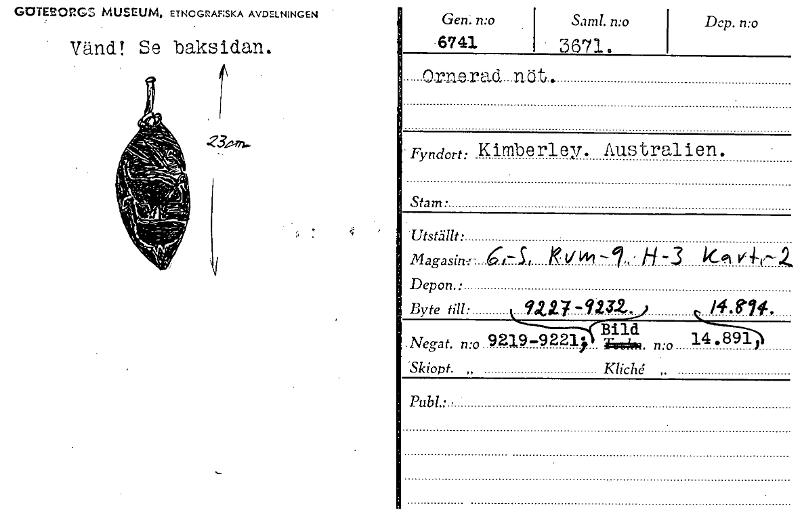 GÖTEBORGS MUSEUM, ETNOGRAFISKA AVDELNINGEN
Vänd! Se baksidan.
23cm
Gen. n:o Saml. n:o Dep. n:o
6741 3671.
Ornerad nöt.
Fyndort: Kimberley. Australien.
Stam:
Utställt:
Magasin: 6.-S. Rum-9. H-3 Kart.-2
Depon.:
Byte till: 9227-9232. 14.894.
Bild
Negat. n:o 9219-9221; n:o 14.891,
Skiopt. „ Kliché „
Publ.: